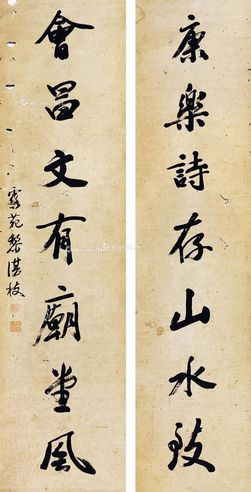 康樂詩存山水致
會昌文有廟堂風
霽苑黎淇枝